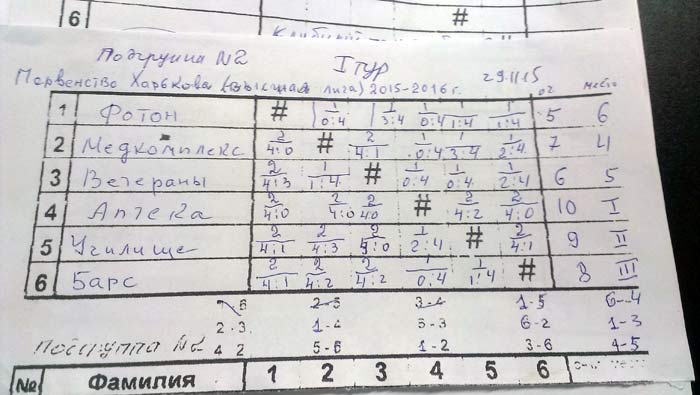 6 #
Подгрупа N2 I тур
Первенство Харькова (высшая лига) 2015-2016 г. 29.11.15 оч место
1 Фотон # 1/0:4 1/3:4 1/0:4 1/1:4 1/1:4 5 6
2 Медкомплекс 2/4:0 # 2/4:1 1/0:4 1/3:4 1/2:4 7 4
3 Ветераны 2/4:3 1/1:4 # 1/0:4 1/0:4 1/2:4 6 5
4 Аптека 2/4:0 2/4:0 2/4:0 # 2/4:2 2/4:0 10 I
5 Училище 2/4:1 2/4:3 2/4:0 1/2:4 # 2/4:1 9 II
6 Барс 2/4:1 2/4:2 2/4:2 1/0:4 1/1:4 # 8 III
6 2-5 3-4 1-5 6-4
2-3 1-4 5-3 6-2 1-3
Подгруппа N2 4 2 5-6 1-2 3-6 4-5
№ Фамилия 1 2 3 4 5 6